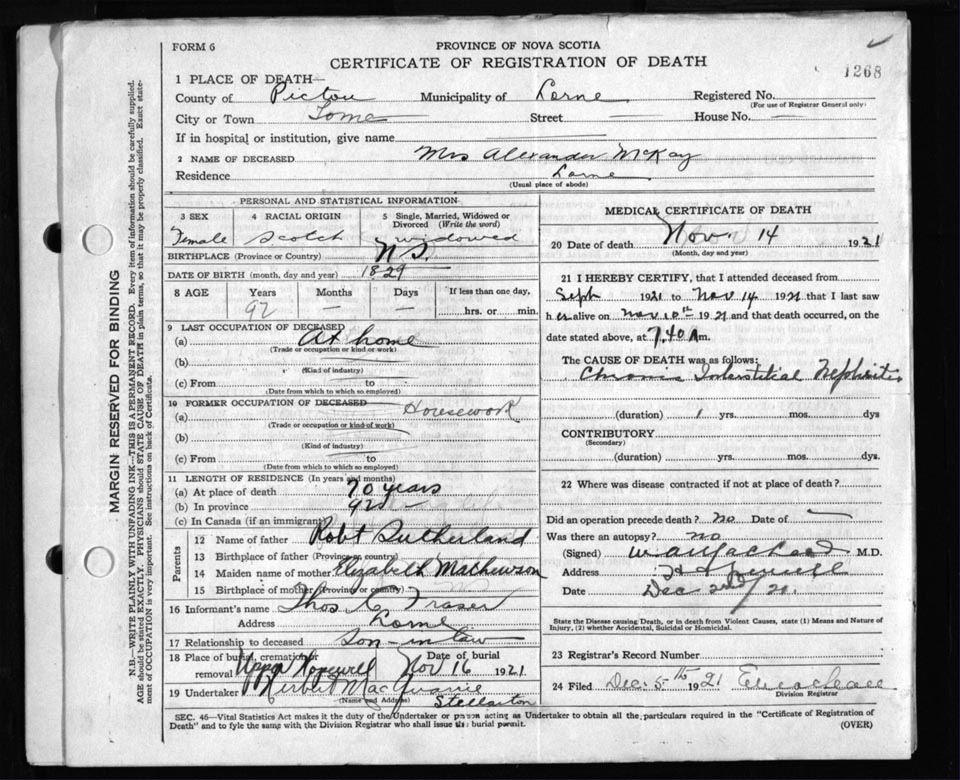 FORM 6
PROVINCE OF NOVA SCOTIA
CERTIFICATE OF REGISTRATION OF DEATH
1268
1 PLACE OF DEATH—
County of Pictou Municipality of Lorne Registered No.
(For use of Registrar General only)
City or Town Street House No.
If in hospital or institution, give name
2 NAME OF DECEASED Mrs Alexander McKay
Residence Lorne
(Usual place of abode)
MARGIN RESERVED FOR BINDING
N.B.—WRITE PLAINLY WITH UNFADING INK—THIS IS A PERMANENT RECORD. Every item of information should be carefully supplied.
AGE should be stated EXACTLY. PHYSICIANS should STATE CAUSE OF DEATH in plain terms, so that it may be properly classified. Exact state-
ment of OCCUPATION is very important. See instructions on back of Certificate.
PERSONAL AND STATISTICAL INFORMATION
3 SEX 4 RACIAL ORIGIN 5 Single, Married, Widowed or Divorced (Write the word)
Female Scotch widowed
BIRTHPLACE (Province or Country) N.S.
DATE OF BIRTH (month, day and year) 1829
8 AGE Years Months Days If less than one day,
92 — — hrs. or min.
9 LAST OCCUPATION OF DECEASED
(a) At home
(Trade or occupation or kind or work)
(b)
(Kind of industry)
(c) From to
(Date from which to which so employed)
10 FORMER OCCUPATION OF DECEASED Housework
(a)
(Trade or occupation or kind of work)
(b)
(Kind of industry)
(c) From to
(Date from which to which so employed)
11 LENGTH OF RESIDENCE (In years and months)
(a) At place of death 70 years
(b) In province 92
(c) In Canada (if an immigrant)
Parents
12 Name of father Robt Sutherland
13 Birthplace of father (Province or country)
14 Maiden name of mother Elizabeth Mathewson
15 Birthplace of mother (Province or country)
16 Informant's name Thos Fraser
Address Lorne
17 Relationship to deceased Son-in law
18 Place of burial, cremation or removal Upper Hopewell Date of burial Nov 16 1921
19 Undertaker
(Name and Address)
Stellarton
MEDICAL CERTIFICATE OF DEATH
20 Date of death Nov. 14 1921
(Month, day and year)
21 I HEREBY CERTIFY, that I attended deceased from
Sept 1921 to Nov 14 1921 that I last saw
her alive on Nov 10th 1921 and that death occurred, on the
date stated above, at 7.40 A m.
The CAUSE OF DEATH was as follows:
Chronic Interstitial Nephritis
(duration) 1 yrs. mos. days
CONTRIBUTORY
(Secondary)
(duration) yrs. mos. days.
22 Where was disease contracted if not at place of death?
Did an operation precede death? no Date of —
Was there an autopsy? no
(Signed) M.D.
Address Hopewell
Date Dec 2nd/21.
State the Disease causing Death, or in death from Violent Causes, state (1) Means and Nature of
Injury, (2) whether Accidental, Suicidal or Homicidal.
23 Registrar's Record Number
24 Filed Dec. 5th 1921
Division Registrar
SEC. 46—Vital Statistics Act makes it the duty of the Undertaker or person acting as Undertaker to obtain all the particulars required in the "Certificate of Registration of
Death" and to fyle the same with the Division Registrar who shall issue the burial permit. (OVER)